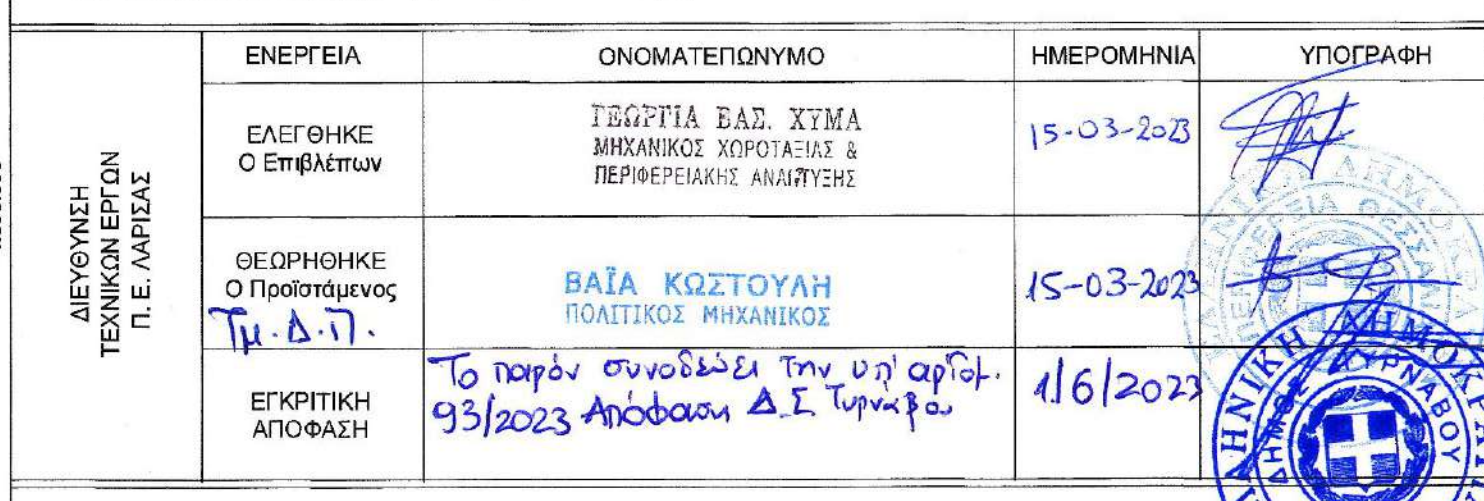 ΔΙΕΥΘΥΝΣΗ
ΤΕΧΝΙΚΩΝ ΕΡΓΩΝ
Π. Ε. ΛΑΡΙΣΑΣ
ΕΝΕΡΓΕΙΑ ΟΝΟΜΑΤΕΠΩΝΥΜΟ ΗΜΕΡΟΜΗΝΙΑ ΥΠΟΓΡΑΦΗ
ΕΛΕΓΘΗΚΕ
Ο Επιβλέπων
ΓΕΩΡΓΙΑ ΒΑΣ. ΧΥΜΑ
ΜΗΧΑΝΙΚΟΣ ΧΩΡΟΤΑΞΙΑΣ &
ΠΕΡΙΦΕΡΕΙΑΚΗΣ ΑΝΑΠΤΥΞΗΣ
15-03-2023
ΘΕΩΡΗΘΗΚΕ
Ο Προϊστάμενος
Τμ. Δ. Π.
ΒΑΪΑ ΚΩΣΤΟΥΛΗ
ΠΟΛΙΤΙΚΟΣ ΜΗΧΑΝΙΚΟΣ
15-03-2023
ΕΓΚΡΙΤΙΚΗ
ΑΠΟΦΑΣΗ
Το παρόν συνοδεύει την υπ' αριθμ.
93/2023 Απόφαση Δ.Σ Τυρνάβου
1/6/2023
ΔΗΜΟΣ ΤΥΡΝΑΒΟΥ